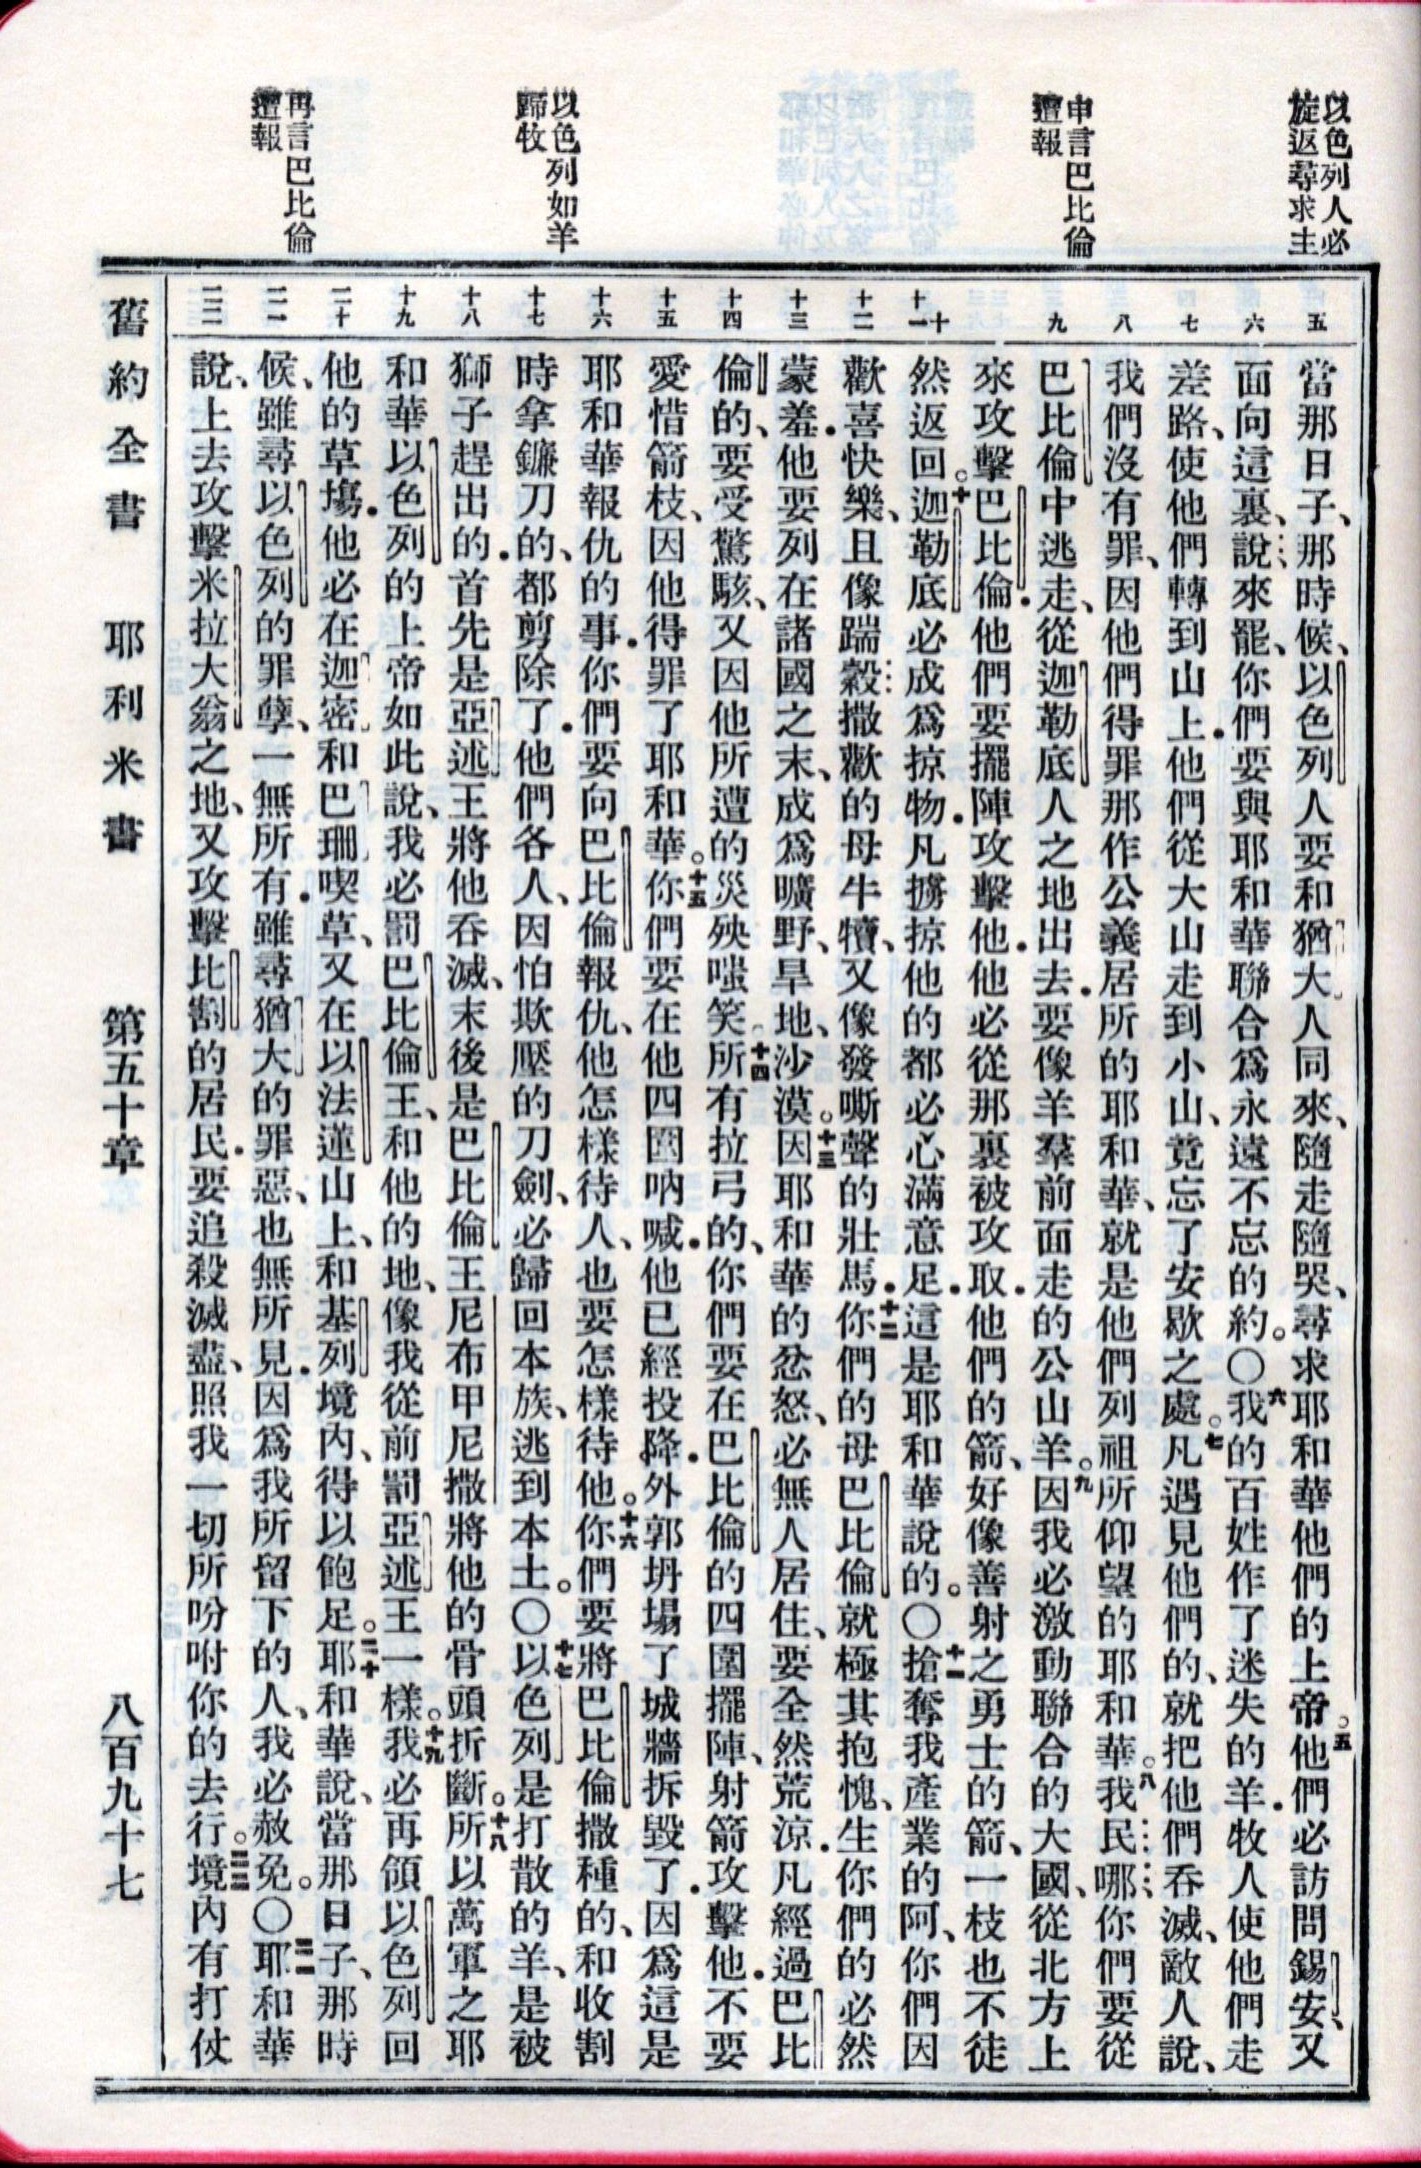 以色列人必
旋返尋求主
申言巴比倫
遭報
以色列如羊
歸牧
再言巴比倫
遭報
五
六
七
八
九
十
十一
十二
十三
十四
十五
十六
十七
十八
十九
二十
二一
二二
當那日子、那時候、以色列人要和猶大人同來、隨走隨哭、尋求耶和華他們的上帝。五他們必訪問錫安、又
面向這裏、說、來罷、你們要與耶和華聯合爲永遠不忘的約。〇六我的百姓作了迷失的羊．牧人使他們走
差路、使他們轉到山上．他們從大山走到小山、竟忘了安歇之處。七凡遇見他們的、就把他們吞滅、敵人說、
我們沒有罪、因他們得罪那作公義居所的耶和華、就是他們列祖所仰望的耶和華。八我民哪、你們要從
巴比倫中逃走、從迦勒底人之地出去．要像羊羣前面走的公山羊。九因我必激動聯合的大國、從北方上
來攻擊巴比倫．他們要擺陣攻擊他．他必從那裏被攻取．他們的箭、好像善射之勇士的箭、一枝也不徒
然返回。十迦勒底必成爲掠物．凡擄掠他的都必心滿意足．這是耶和華說的。〇十一搶奪我產業的阿、你們因
歡喜快樂、且像踹穀撒歡的母牛犢、又像發嘶聲的壯馬．十二你們的母巴比倫就極其抱愧、生你們的必然
蒙羞．他要列在諸國之末、成爲曠野、旱地、沙漠。十三因耶和華的忿怒、必無人居住、要全然荒涼．凡經過巴比
倫的、要受驚駭、又因他所遭的災殃嗤笑。十四所有拉弓的、你們要在巴比倫的四圍擺陣、射箭攻擊他．不要
愛惜箭枝、因他得罪了耶和華。十五你們要在他四圍吶喊．他已經投降．外郭坍塌了城牆拆毀了．因爲這是
耶和華報仇的事．你們要向巴比倫報仇、他怎樣待人、也要怎樣待他。十六你們要將巴比倫撒種的、和收割
時拿鐮刀的、都剪除了．他們各人、因怕欺壓的刀劍、必歸回本族、逃到本土。〇十七以色列是打散的羊、是被
獅子趕出的．首先是亞述王將他吞滅、末後是巴比倫王尼布甲尼撒將他的骨頭折斷。十八所以萬軍之耶
和華以色列的上帝如此說、我必罰巴比倫王、和他的地、像我從前罰亞述王一樣。十九我必再領以色列回
他的草塲．他必在迦密和巴珊喫草、又在以法蓮山上、和基列境內、得以飽足。二十耶和華說、當那日子、那時
候、雖尋以色列的罪孽、一無所有．雖尋猶大的罪惡、也無所見．因爲我所留下的人、我必赦免。〇二一耶和華
說、上去攻擊米拉大翁之地、又攻擊比割的居民．要追殺滅盡、照我一切所吩咐你的去行。二二境內有打仗
舊約全書　耶利米書　第五十章　八百九十七